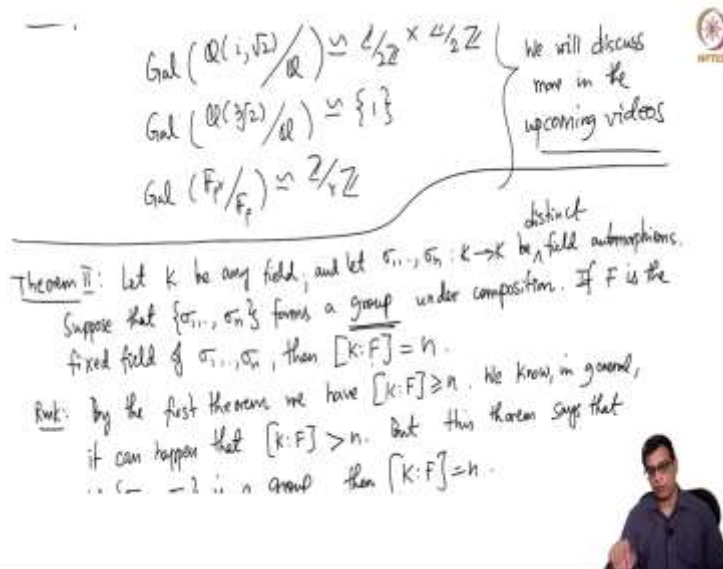 Gal(ℚ(i,√2)/ℚ) ≃ ℤ/2ℤ × ℤ/2ℤ
Gal(ℚ(∛2)/ℚ) ≃ {1}
Gal(𝔽pʳ/𝔽p) ≃ ℤ/rℤ
We will discuss
more in the
upcoming videos
NPTEL
Theorem II: Let K be any field, and let σ₁,..., σₙ : K→K be ^ distinct field automorphisms.
Suppose that {σ₁,..., σₙ} forms a group under composition. If F is the
fixed field of σ₁,...,σₙ, then [K:F] = n.
Rmk: By the first theorem we have [K:F] ≥ n. We know, in general,
it can happen that [K:F] > n. But this theorem says that
is a group then [K:F] = n.